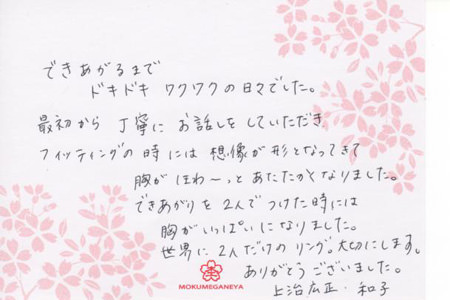 できあがるまで
ドキドキ ワクワクの日々でした。
最初から 丁寧に お話しをしていただき
フィッティングの時には 想像が形となってきて
胸が ほわ〜っと あたたかくなりました。
できあがりを 2人で つけた時には
胸が いっぱいに なりました。
世界に 2人だけの リング。大切にします。
ありがとう ございました。
上治広正・和子
MOKUMEGANEYA